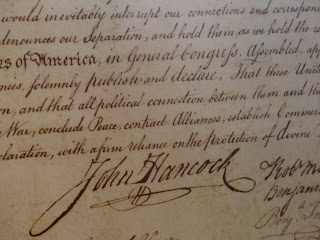 would inevitably interrupt our connections and correspon
denounces our Separation, and hold them, as we hold the re
es of America, in General Congress, Assembled, ap
nies, solemnly publish and declare, That these Unite
on, and that all political connection between them and th
y War, conclude Peace, contract Alliances, establish Commer
claration, with a firm reliance on the protection of divine
John Hancock
Rob M
Benjam
Benj